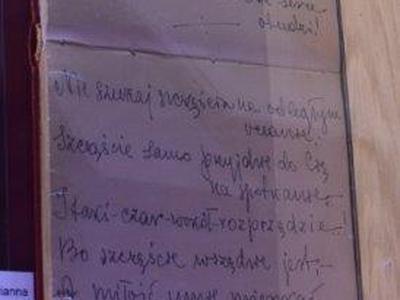 serce
obudzi!
Nie szukaj szczęścia na odległym
oceanie.
Szczęście samo przyjdzie do Cię
na spotkanie,-
I taki-czar-wokół-rozprządzie-!
Bo szczęście wszędzie jest,-
A miłość umie
ianna